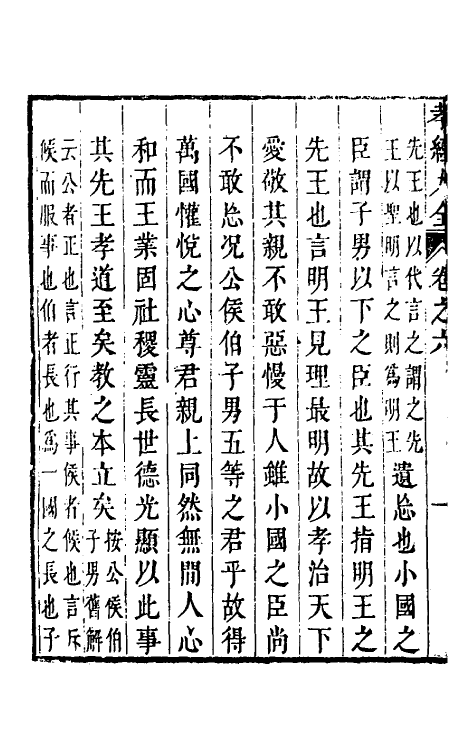 孝經大全 卷之六 一
先王也以代言之謂之先
王以聖明言之則爲明王
遺忘也小國之
臣謂子男以下之臣也其先王指明王之
先王也言明王見理最明故以孝治天下
愛敬其親不敢惡慢于人雖小國之臣尚
不敢忘况公侯伯子男五等之君乎故得
萬國懽悅之心尊君親上同然無間人心
和而王業固社稷靈長世德光顯以此事
其先王孝道至矣教之本立矣
按公侯伯
子男舊解
云公者正也言正行其事侯者候也言斥
候而服事也伯者長也爲一國之長也子